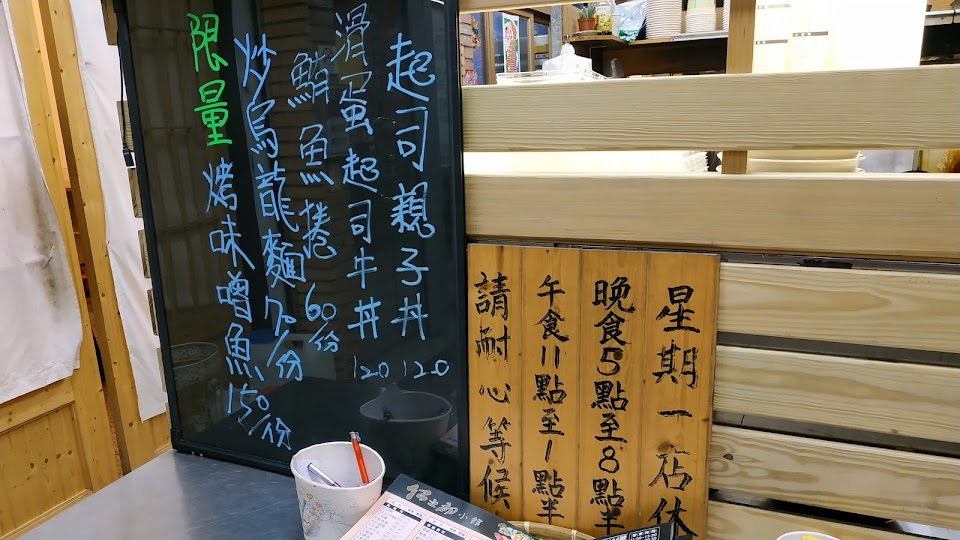 起司親子丼 120
滑蛋起司牛丼 120
鯖魚捲 60份
炒烏龍麵 70/份
限量 烤味噌魚 150/份
星期一店休
晚食5點至8點半
午食11點至1點半
請耐心等候
小館